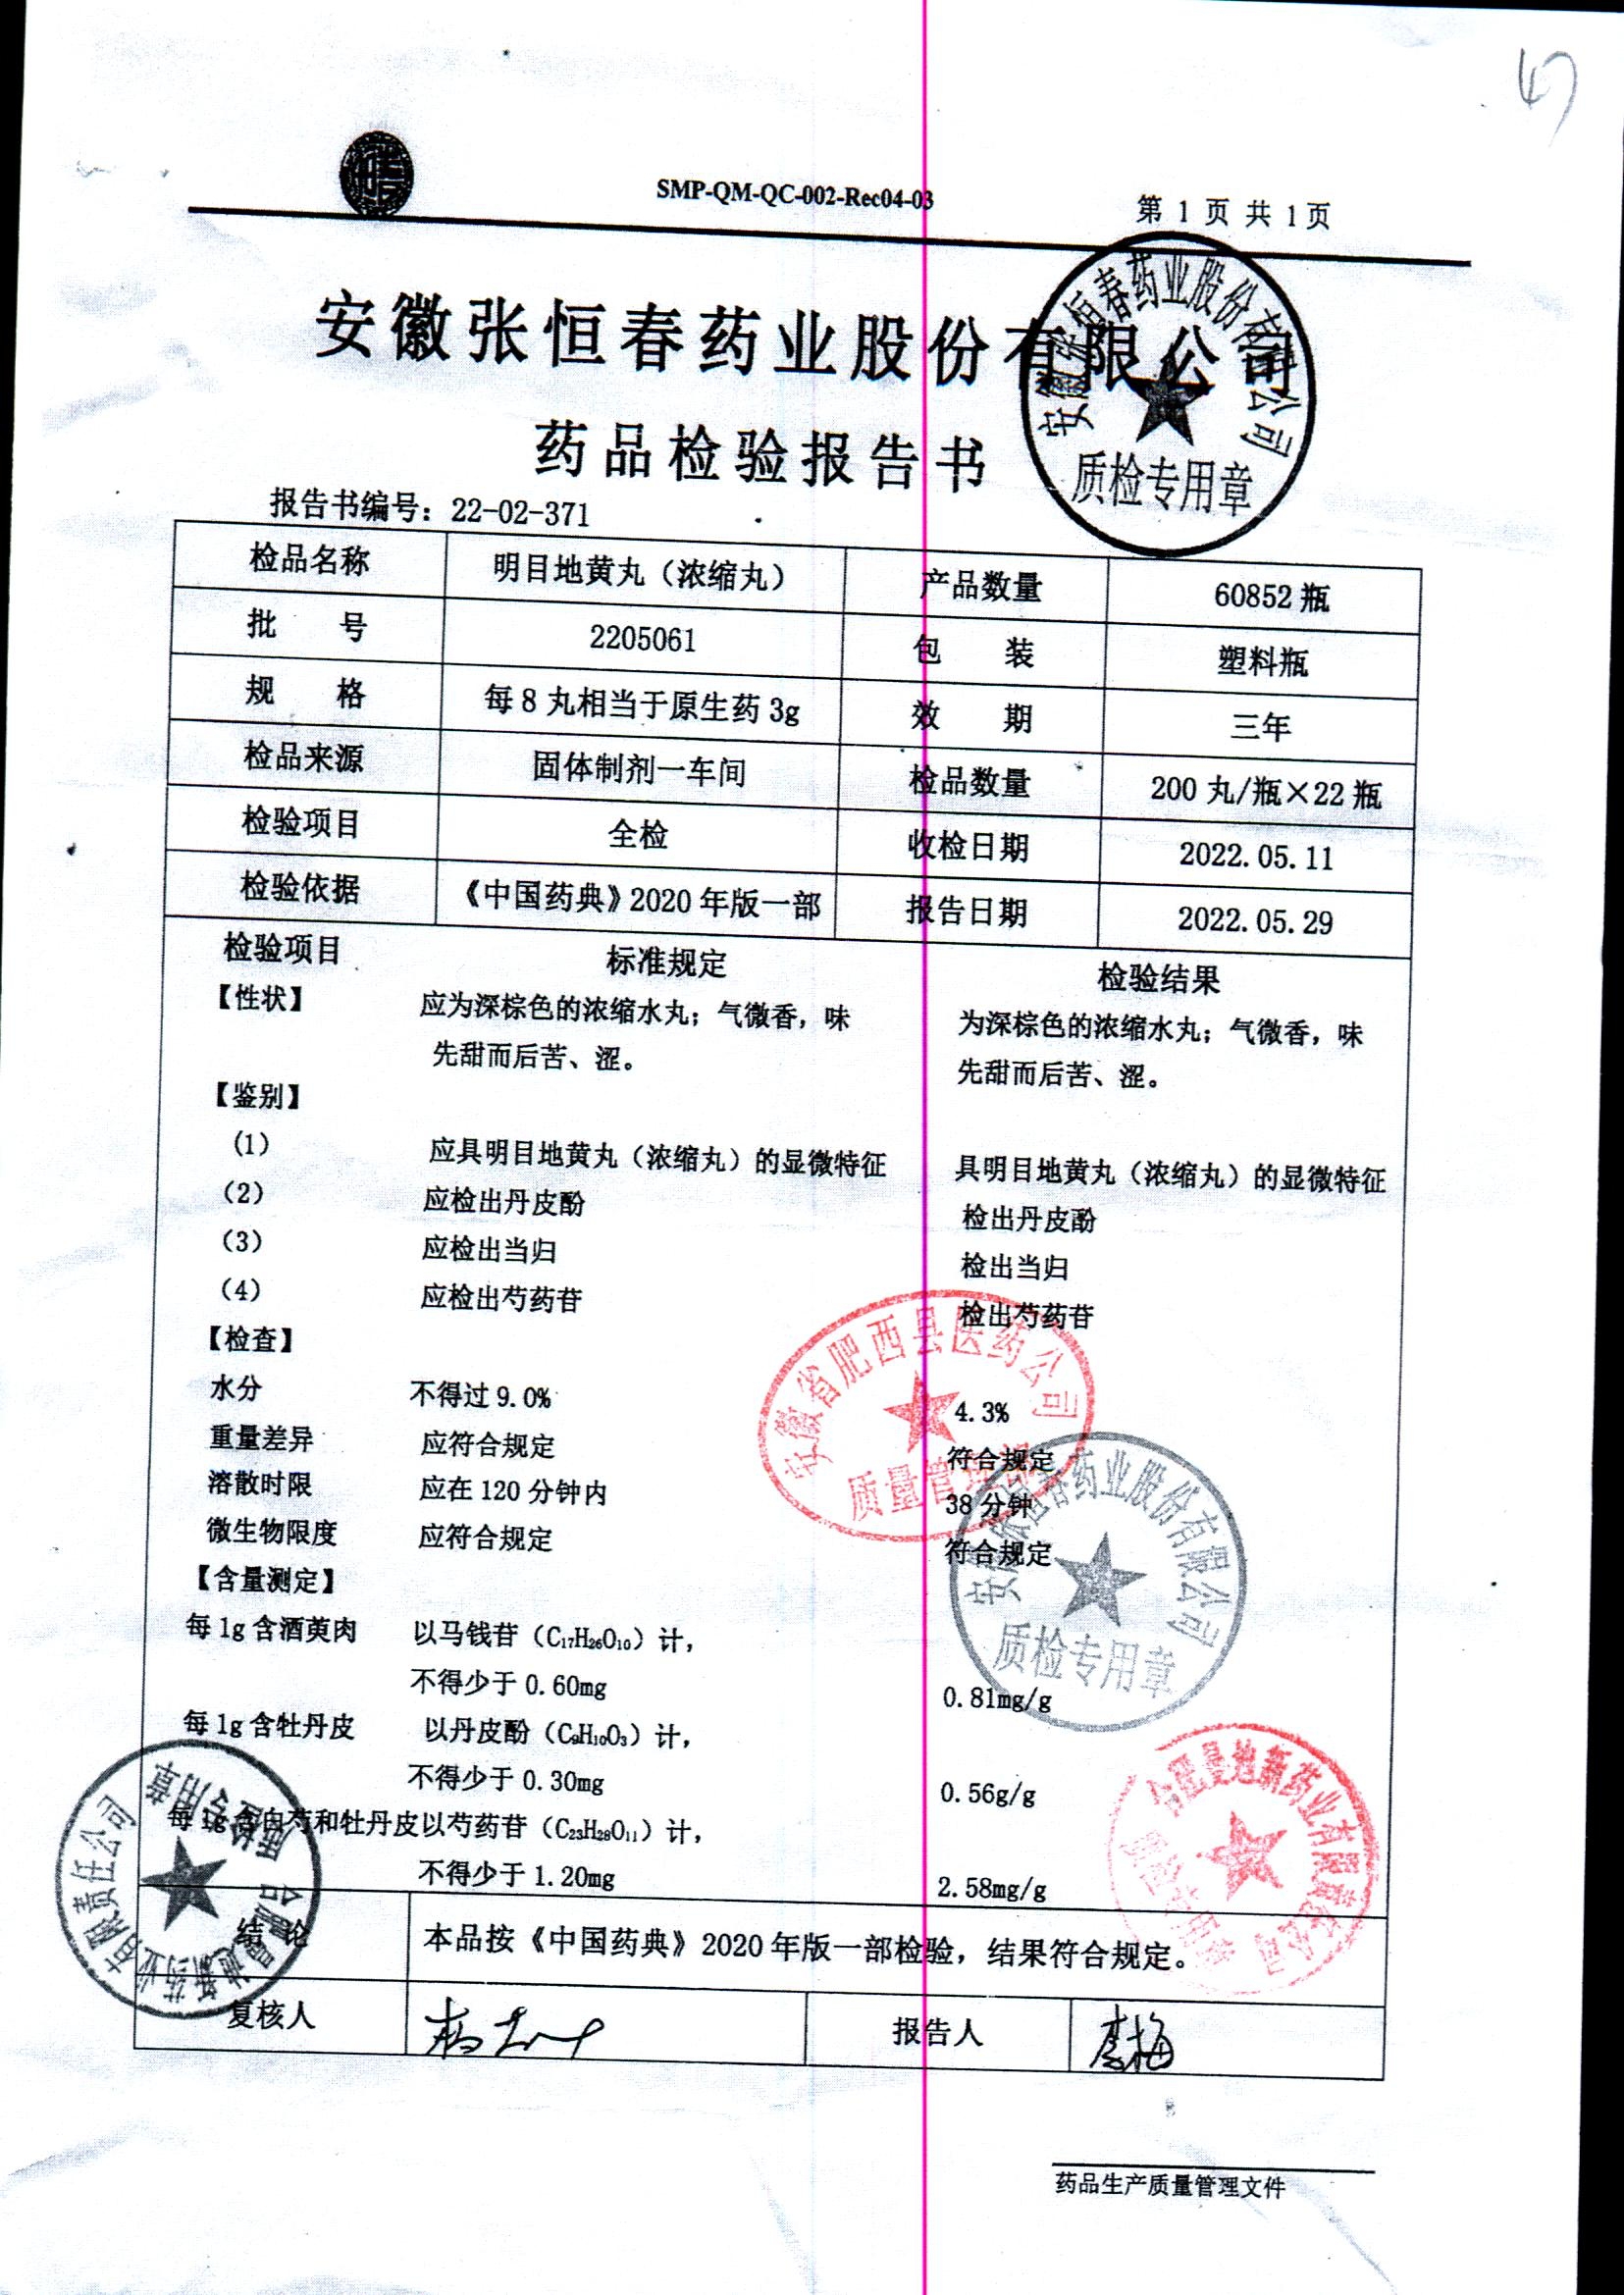 SMP-QM-QC-002-Rec04-03
第 1 页 共 1页
安徽张恒春药业股份有限公司
药品检验报告书
报告书编号：22-02-371
检品名称 明目地黄丸（浓缩丸） 产品数量 60852瓶
批 号 2205061 包 装 塑料瓶
规 格 每8丸相当于原生药3g 效 期 三年
检品来源 固体制剂一车间 检品数量 200丸/瓶×22瓶
检验项目 全检 收检日期 2022.05.11
检验依据 《中国药典》2020年版一部 报告日期 2022.05.29
检验项目 标准规定 检验结果
【性状】 应为深棕色的浓缩水丸；气微香，味 为深棕色的浓缩水丸；气微香，味
先甜而后苦、涩。 先甜而后苦、涩。
【鉴别】
(1) 应具明目地黄丸（浓缩丸）的显微特征 具明目地黄丸（浓缩丸）的显微特征
(2) 应检出丹皮酚 检出丹皮酚
(3) 应检出当归 检出当归
(4) 应检出芍药苷 检出芍药苷
【检查】
水分 不得过9.0% 4.3%
重量差异 应符合规定 符合规定
溶散时限 应在120分钟内 38分钟
微生物限度 应符合规定 符合规定
【含量测定】
每1g含酒萸肉 以马钱苷（C₁₇H₂₆O₁₀）计，
不得少于0.60mg 0.81mg/g
每1g含牡丹皮 以丹皮酚（C₉H₁₀O₃）计，
不得少于0.30mg 0.56g/g
每1g含白芍和牡丹皮以芍药苷（C₂₃H₂₈O₁₁）计，
不得少于1.20mg 2.58mg/g
结 论 本品按《中国药典》2020年版一部检验，结果符合规定。
复核人 报告人 李梅
药品生产质量管理文件
安徽张恒春药业股份有限公司
质检专用章
安徽省肥西县医药公司
质量管理部
安徽张恒春药业股份有限公司
质检专用章
合肥曼迪新药业有限责任公司
质检专用章
合肥曼迪新药业有限责任公司
质检专用章